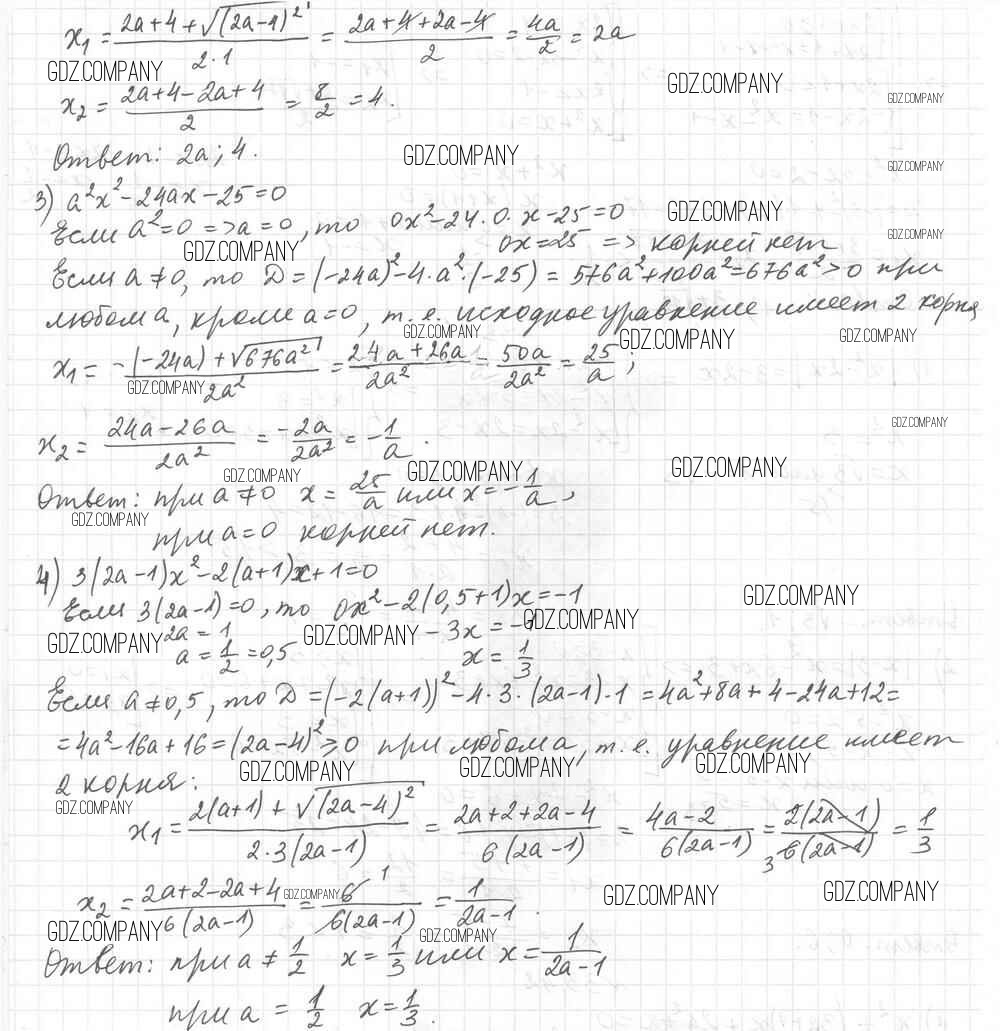 x₁ = (2a+4+√((2a-4)²))/(2·1) = (2a+4+2a-4)/2 = 4a/2 = 2a
GDZ.COMPANY GDZ.COMPANY
x₂ = (2a+4-2a+4)/2 = 8/2 = 4. GDZ.COMPANY
Ответ: 2a; 4. GDZ.COMPANY GDZ.COMPANY
3) a²x²-24ax-25=0 GDZ.COMPANY
Если a²=0 => a=0, то 0x²-24·0·x-25=0 GDZ.COMPANY
GDZ.COMPANY 0x=25 => корней нет
Если a≠0, то D=(-24a)²-4·a²·(-25)=576a²+100a²=676a²>0 при
любом a, кроме a=0, т.е. исходное уравнение имеет 2 корня
GDZ.COMPANY GDZ.COMPANY GDZ.COMPANY
x₁ = (-(-24a)+√(676a²))/(2a²) = (24a+26a)/(2a²) = 50a/(2a²) = 25/a;
GDZ.COMPANY GDZ.COMPANY
x₂ = (24a-26a)/(2a²) = -2a/(2a²) = -1/a.
GDZ.COMPANY GDZ.COMPANY GDZ.COMPANY
Ответ: при a≠0 x=25/a или x=-1/a,
GDZ.COMPANY
при a=0 корней нет.
4) 3(2a-1)x²-2(a+1)x+1=0
Если 3(2a-1)=0, то 0x²-2(0,5+1)x=-1 GDZ.COMPANY
GDZ.COMPANY 2a=1 GDZ.COMPANY -3x=-1 GDZ.COMPANY
a=1/2=0,5 x=1/3
Если a≠0,5, то D=(-2(a+1))²-4·3·(2a-1)·1=4a²+8a+4-24a+12=
=4a²-16a+16=(2a-4)²≥0 при любом a, т.е. уравнение имеет
2 корня: GDZ.COMPANY GDZ.COMPANY GDZ.COMPANY
GDZ.COMPANY
x₁ = (2(a+1)+√((2a-4)²))/(2·3(2a-1)) = (2a+2+2a-4)/(6(2a-1)) = (4a-2)/(6(2a-1)) = 2(2a-1)/(6(2a-1)) 3 = 1/3
x₂ = (2a+2-2a+4)/(6(2a-1)) = 6 1/(6(2a-1)) = 1/(2a-1). GDZ.COMPANY GDZ.COMPANY GDZ.COMPANY
GDZ.COMPANY GDZ.COMPANY
Ответ: при a≠1/2 x=1/3 или x=1/(2a-1)
при a=1/2 x=1/3.